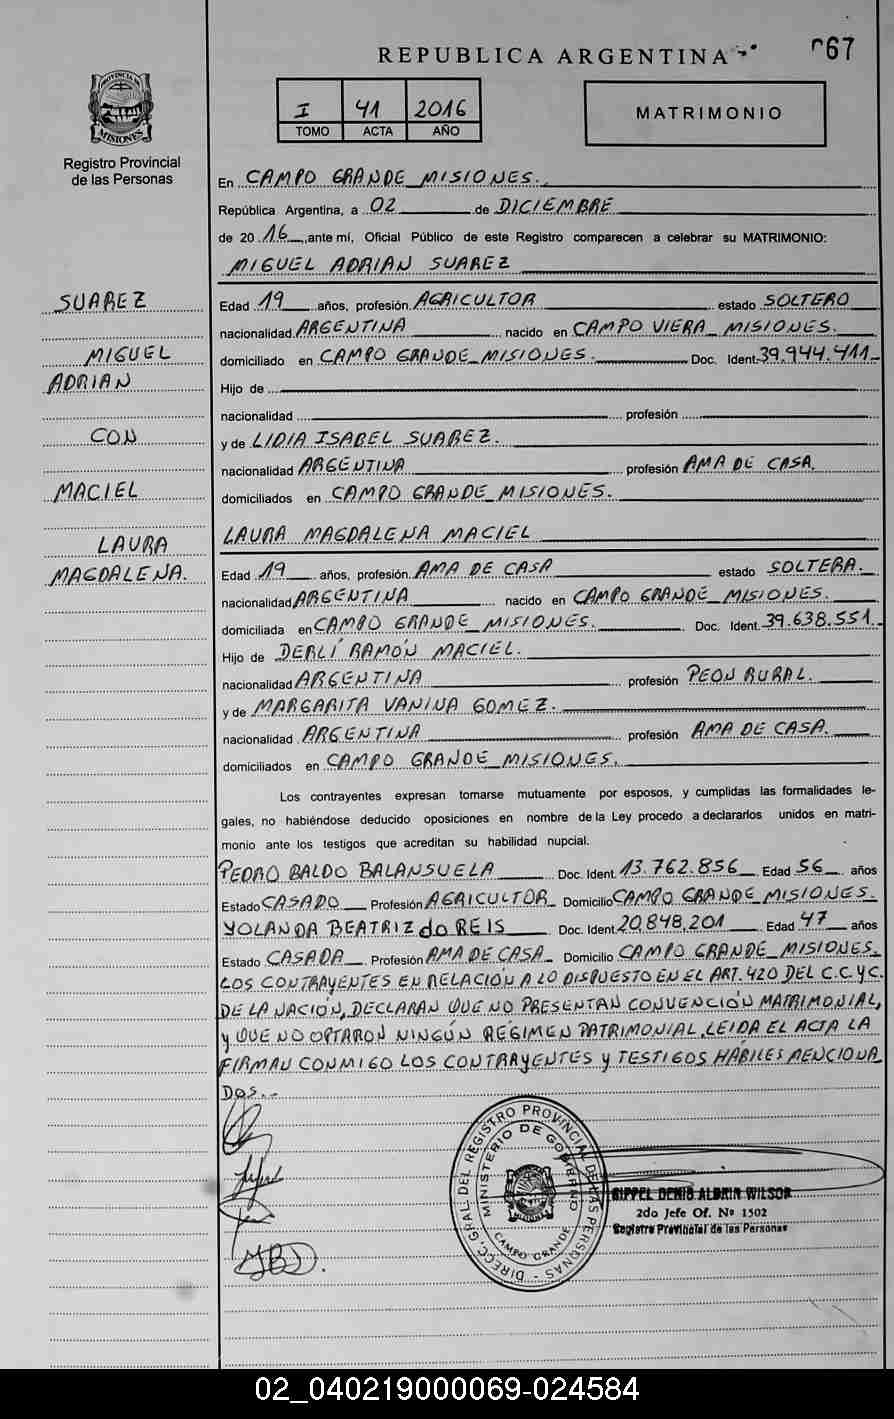 REPUBLICA ARGENTINA
067
PROVINCIA DE MISIONES
Registro Provincial
de las Personas
I 41 2016
TOMO ACTA AÑO
MATRIMONIO
En CAMPO GRANDE MISIONES.
República Argentina, a 02 de DICIEMBRE
de 20 16 ,ante mí, Oficial Público de este Registro comparecen a celebrar su MATRIMONIO:
MIGUEL ADRIAN SUAREZ
SUAREZ
MIGUEL
ADRIAN
CON
MACIEL
LAURA
MAGDALENA.
Edad 19 años, profesión AGRICULTOR estado SOLTERO
nacionalidad ARGENTINA nacido en CAMPO VIERA MISIONES.
domiciliado en CAMPO GRANDE MISIONES. Doc. Ident. 39.944.411
Hijo de
nacionalidad profesión
y de LIDIA ISABEL SUAREZ.
nacionalidad ARGENTINA profesión AMA DE CASA.
domiciliados en CAMPO GRANDE MISIONES.
LAURA MAGDALENA MACIEL
Edad 19 años, profesión AMA DE CASA estado SOLTERA.
nacionalidad ARGENTINA nacido en CAMPO GRANDE MISIONES.
domiciliada en CAMPO GRANDE MISIONES. Doc. Ident. 39.638.551.
Hijo de DERLÍ RAMÓN MACIEL.
nacionalidad ARGENTINA profesión PEON RURAL.
y de MARGARITA VANINA GOMEZ.
nacionalidad ARGENTINA profesión AMA DE CASA.
domiciliados en CAMPO GRANDE MISIONES.
Los contrayentes expresan tomarse mutuamente por esposos, y cumplidas las formalidades le-
gales, no habiéndose deducido oposiciones en nombre de la Ley procedo a declararlos unidos en matri-
monio ante los testigos que acreditan su habilidad nupcial.
PEDRO BALDO BALANSUELA Doc. Ident. 13.762.856 Edad 56 años
Estado CASADO Profesión AGRICULTOR Domicilio CAMPO GRANDE MISIONES.
YOLANDA BEATRIZ do REIS Doc. Ident. 20.848.201 Edad 47 años
Estado CASADA Profesión AMA DE CASA Domicilio CAMPO GRANDE MISIONES.
LOS CONTRAYENTES EN RELACIÓN A LO DISPUESTO EN EL ART. 420 DEL C.C.yC.
DE LA NACIÓN, DECLARAN QUE NO PRESENTAN CONVENCIÓN MATRIMONIAL,
y QUE NO OPTARON NINGÚN RÉGIMEN PATRIMONIAL, LEIDA EL ACTA LA
FIRMAN CONMIGO LOS CONTRAYENTES y TESTIGOS HÁBILES MENCIONA
DOS.
DIRECC. GRAL. DEL REGISTRO PROVINCIAL DE LAS PERSONAS
MINISTERIO DE GOBIERNO
CAMPO GRANDE
DENIS WILSON
2do Jefe Of. Nº 1502
Registro Provincial de las Personas
02_040219000069-024584